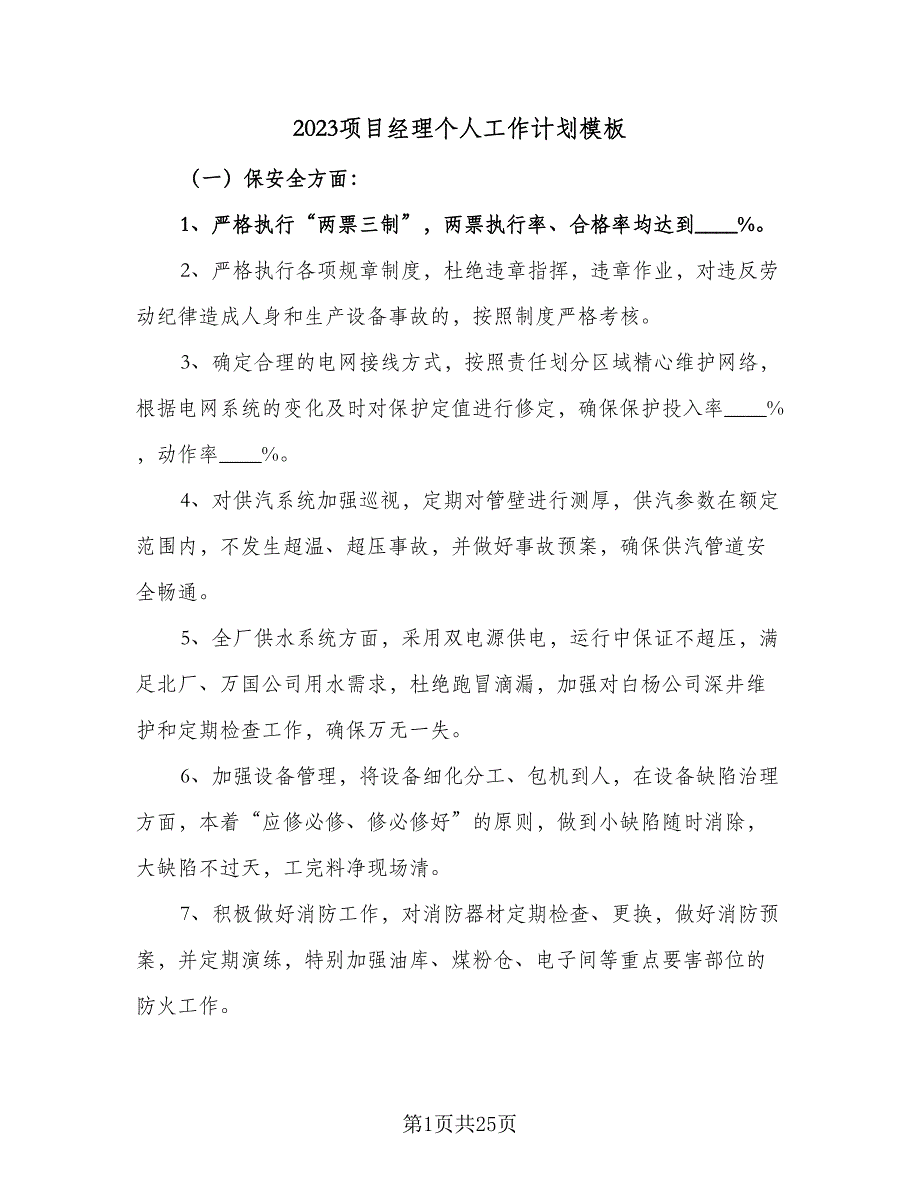 2023项目经理个人工作计划模板
（一）保安全方面：
1、严格执行“两票三制”，两票执行率、合格率均达到____%。
2、严格执行各项规章制度，杜绝违章指挥，违章作业，对违反劳
动纪律造成人身和生产设备事故的，按照制度严格考核。
3、确定合理的电网接线方式，按照责任划分区域精心维护网络，
根据电网系统的变化及时对保护定值进行修定，确保保护投入率____%
，动作率____%。
4、对供汽系统加强巡视，定期对管壁进行测厚，供汽参数在额定
范围内，不发生超温、超压事故，并做好事故预案，确保供汽管道安
全畅通。
5、全厂供水系统方面，采用双电源供电，运行中保证不超压，满
足北厂、万国公司用水需求，杜绝跑冒滴漏，加强对白杨公司深井维
护和定期检查工作，确保万无一失。
6、加强设备管理，将设备细化分工、包机到人，在设备缺陷治理
方面，本着“应修必修、修必修好”的原则，做到小缺陷随时消除，
大缺陷不过天，工完料净现场清。
7、积极做好消防工作，对消防器材定期检查、更换，做好消防预
案，并定期演练，特别加强油库、煤粉仓、电子间等重点要害部位的
防火工作。
第1页共25页